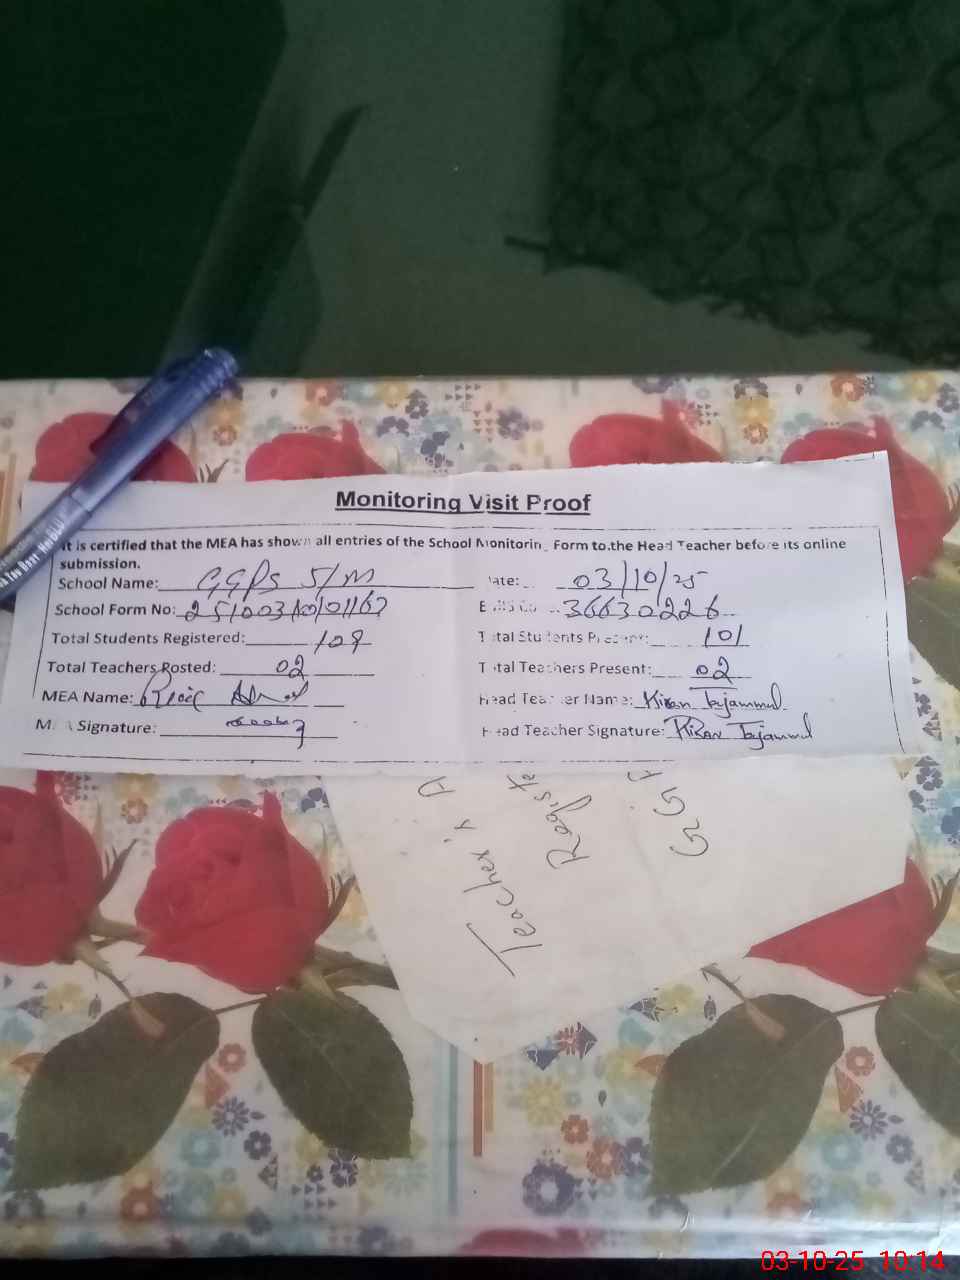 Monitoring Visit Proof
It is certified that the MEA has shown all entries of the School Monitoring Form to the Head Teacher before its online
submission.
School Name: GGPS 5/M Date: 03/10/25
School Form No: EMIS Co 36630226
Total Students Registered: Total Students Present: 101
Total Teachers Posted: 02 Total Teachers Present: 02
MEA Name: Head Teacher Name: Kiran Tajammul
MEA Signature: Head Teacher Signature: Kiran Tajammul
Teacher's A
Registe
GGP
03-10-25 10:14